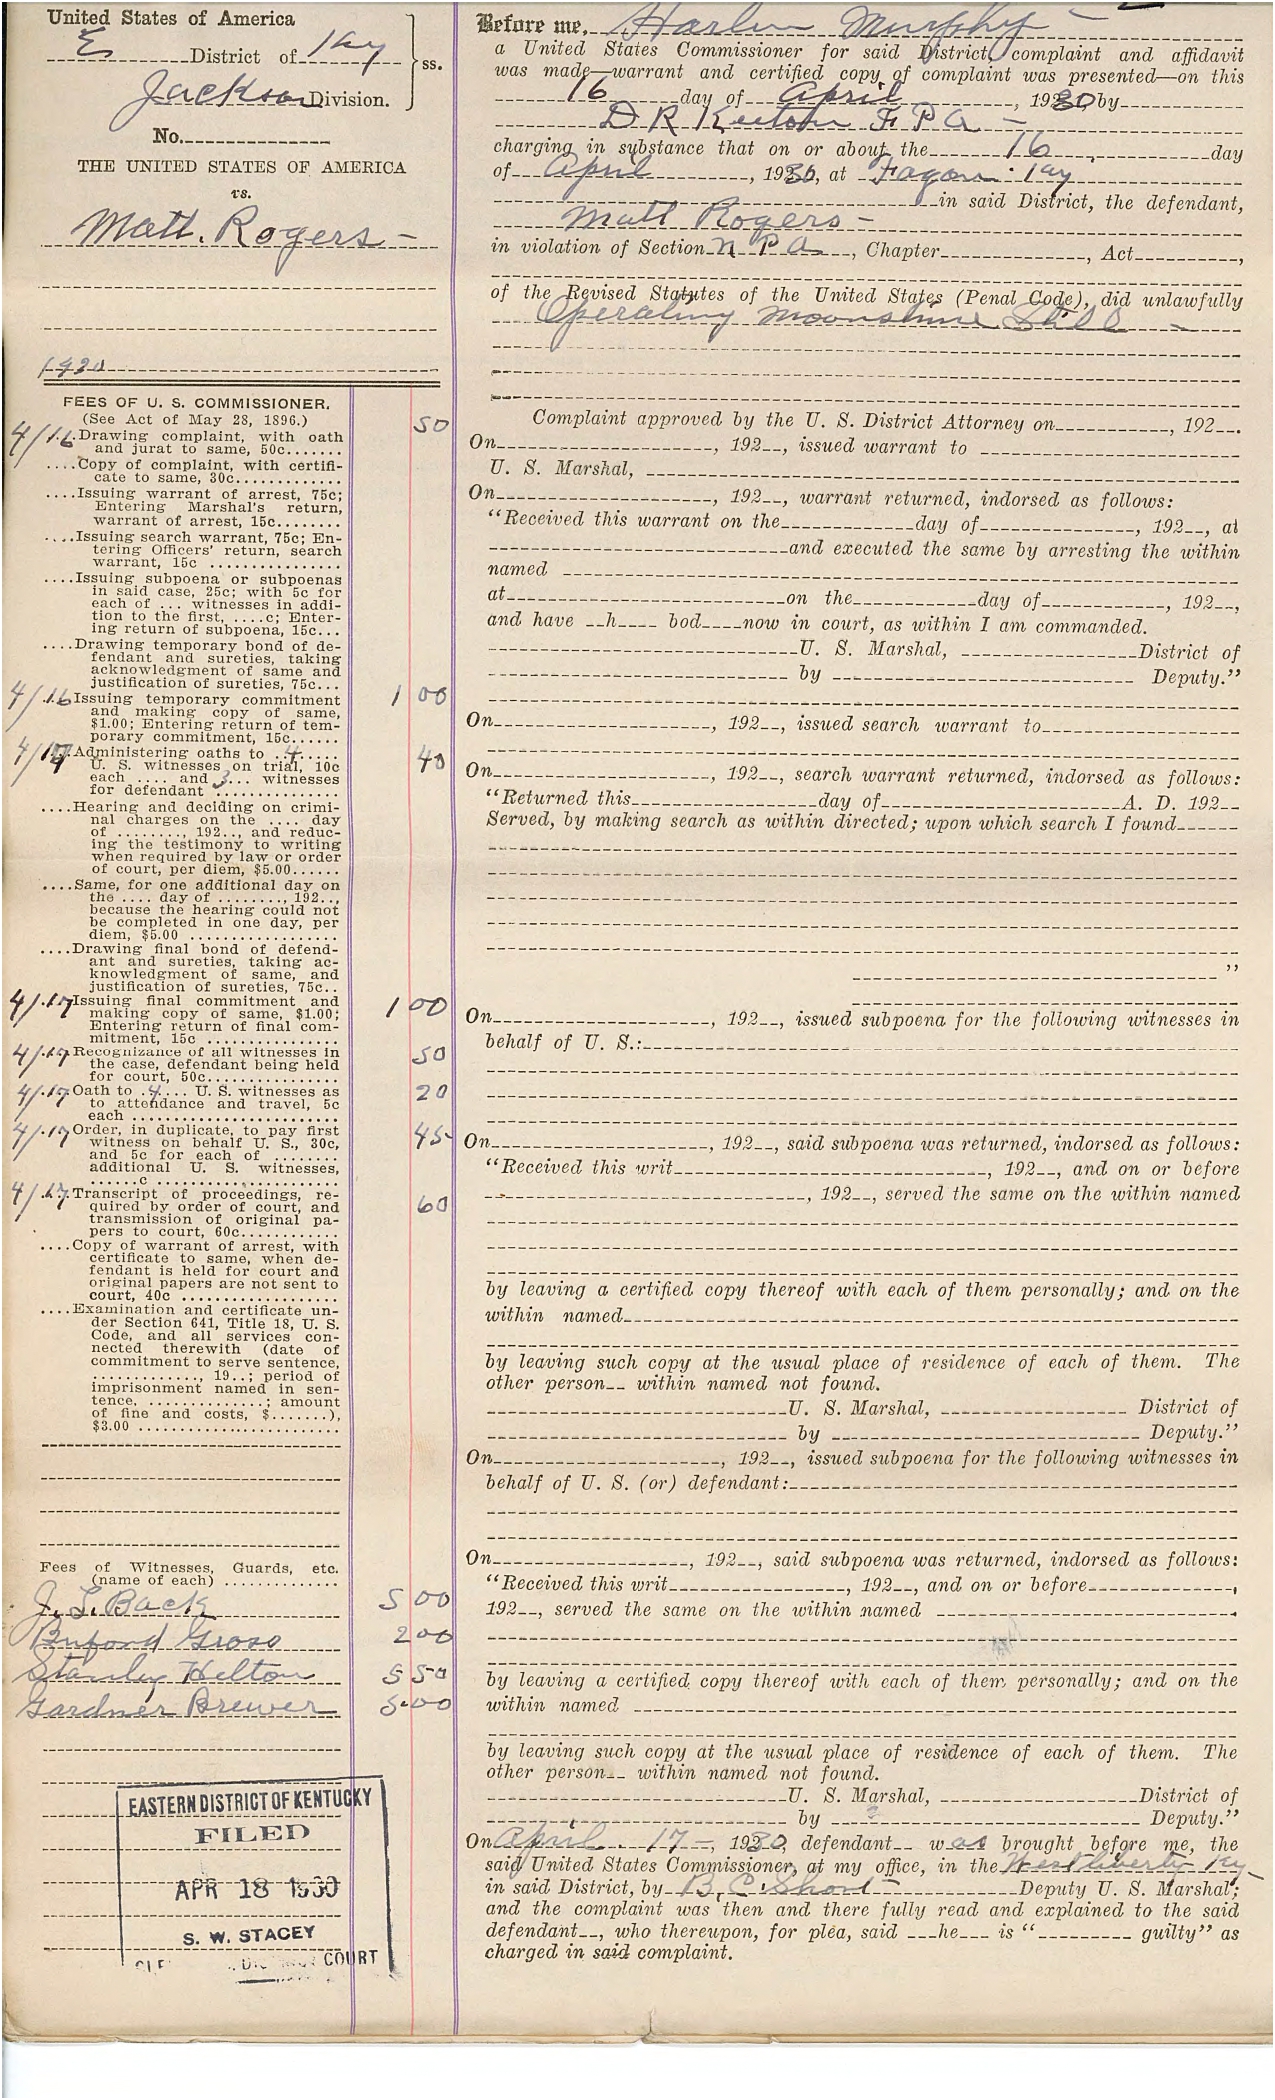 United States of America
E District of Ky
Jackson Division.
ss.
No.
THE UNITED STATES OF AMERICA
vs.
Matt. Rogers -
1930
FEES OF U. S. COMMISSIONER.
(See Act of May 28, 1896.)
4/16 Drawing complaint, with oath 50
and jurat to same, 50c.......
....Copy of complaint, with certifi-
cate to same, 30c.............
....Issuing warrant of arrest, 75c;
Entering Marshal's return,
warrant of arrest, 15c........
....Issuing search warrant, 75c; En-
tering Officers' return, search
warrant, 15c ................
....Issuing subpoena or subpoenas
in said case, 25c; with 5c for
each of ... witnesses in addi-
tion to the first, ....c; Enter-
ing return of subpoena, 15c...
....Drawing temporary bond of de-
fendant and sureties, taking
acknowledgment of same and
justification of sureties, 75c...
4/16 Issuing temporary commitment 1 00
and making copy of same,
$1.00; Entering return of tem-
porary commitment, 15c......
4/17 Administering oaths to ..4.... 40
U. S. witnesses on trial, 10c
each .... and 3... witnesses
for defendant ...............
....Hearing and deciding on crimi-
nal charges on the .... day
of ........, 192.., and reduc-
ing the testimony to writing
when required by law or order
of court, per diem, $5.00......
....Same, for one additional day on
the .... day of ........, 192..,
because the hearing could not
be completed in one day, per
diem, $5.00 ..................
....Drawing final bond of defend-
ant and sureties, taking ac-
knowledgment of same, and
justification of sureties, 75c..
4/17 Issuing final commitment and 1 00
making copy of same, $1.00;
Entering return of final com-
mitment, 15c ................
4/17 Recognizance of all witnesses in 50
the case, defendant being held
for court, 50c................
4/17 Oath to .4.... U. S. witnesses as 20
to attendance and travel, 5c
each .........................
4/17 Order, in duplicate, to pay first 45
witness on behalf U. S., 30c,
and 5c for each of ........
additional U. S. witnesses,
......c ......................
4/17 Transcript of proceedings, re- 60
quired by order of court, and
transmission of original pa-
pers to court, 60c............
....Copy of warrant of arrest, with
certificate to same, when de-
fendant is held for court and
original papers are not sent to
court, 40c ...................
....Examination and certificate un-
der Section 641, Title 18, U. S.
Code, and all services con-
nected therewith (date of
commitment to serve sentence,
............., 19..; period of
imprisonment named in sen-
tence, ..............; amount
of fine and costs, $.......),
$3.00 ........................
Fees of Witnesses, Guards, etc.
(name of each) ..............
J. L. Back 5 00
Buford Gross 2 00
Stanley Helton 5 50
Gardner Brewer 5-00
EASTERN DISTRICT OF KENTUCKY
FILED
APR 18 1930
S. W. STACEY
COURT
Before me, Harlin Murphy -
a United States Commissioner for said District, complaint and affidavit
was made—warrant and certified copy of complaint was presented—on this
16 day of April, 1930 by
D R Keeton F P A -
charging in substance that on or about the 16 day
of April, 1930, at Fagan. Ky
in said District, the defendant,
Matt Rogers -
in violation of Section N P A, Chapter, Act,
of the Revised Statutes of the United States (Penal Code), did unlawfully
Operating Moonshine Still -
Complaint approved by the U. S. District Attorney on, 192__.
On, 192__, issued warrant to
U. S. Marshal,
On, 192__, warrant returned, indorsed as follows:
"Received this warrant on the day of, 192__, at
and executed the same by arresting the within
named
at on the day of, 192__,
and have __h____ bod____now in court, as within I am commanded.
U. S. Marshal, District of
by Deputy."
On, 192__, issued search warrant to
On, 192__, search warrant returned, indorsed as follows:
"Returned this day of A. D. 192__
Served, by making search as within directed; upon which search I found
"
On, 192__, issued subpoena for the following witnesses in
behalf of U. S.:
On, 192__, said subpoena was returned, indorsed as follows:
"Received this writ, 192__, and on or before
, 192__, served the same on the within named
by leaving a certified copy thereof with each of them personally; and on the
within named
by leaving such copy at the usual place of residence of each of them. The
other person__ within named not found.
U. S. Marshal, District of
by Deputy."
On, 192__, issued subpoena for the following witnesses in
behalf of U. S. (or) defendant:
On, 192__, said subpoena was returned, indorsed as follows:
"Received this writ, 192__, and on or before,
192__, served the same on the within named
by leaving a certified copy thereof with each of them personally; and on the
within named
by leaving such copy at the usual place of residence of each of them. The
other person__ within named not found.
U. S. Marshal, District of
by Deputy."
On April. 17 -, 1930, defendant__ was brought before me, the
said United States Commissioner, at my office, in the West liberty Ky
in said District, by B. C. Short Deputy U. S. Marshal;
and the complaint was then and there fully read and explained to the said
defendant__, who thereupon, for plea, said ___he___ is "_________ guilty" as
charged in said complaint.